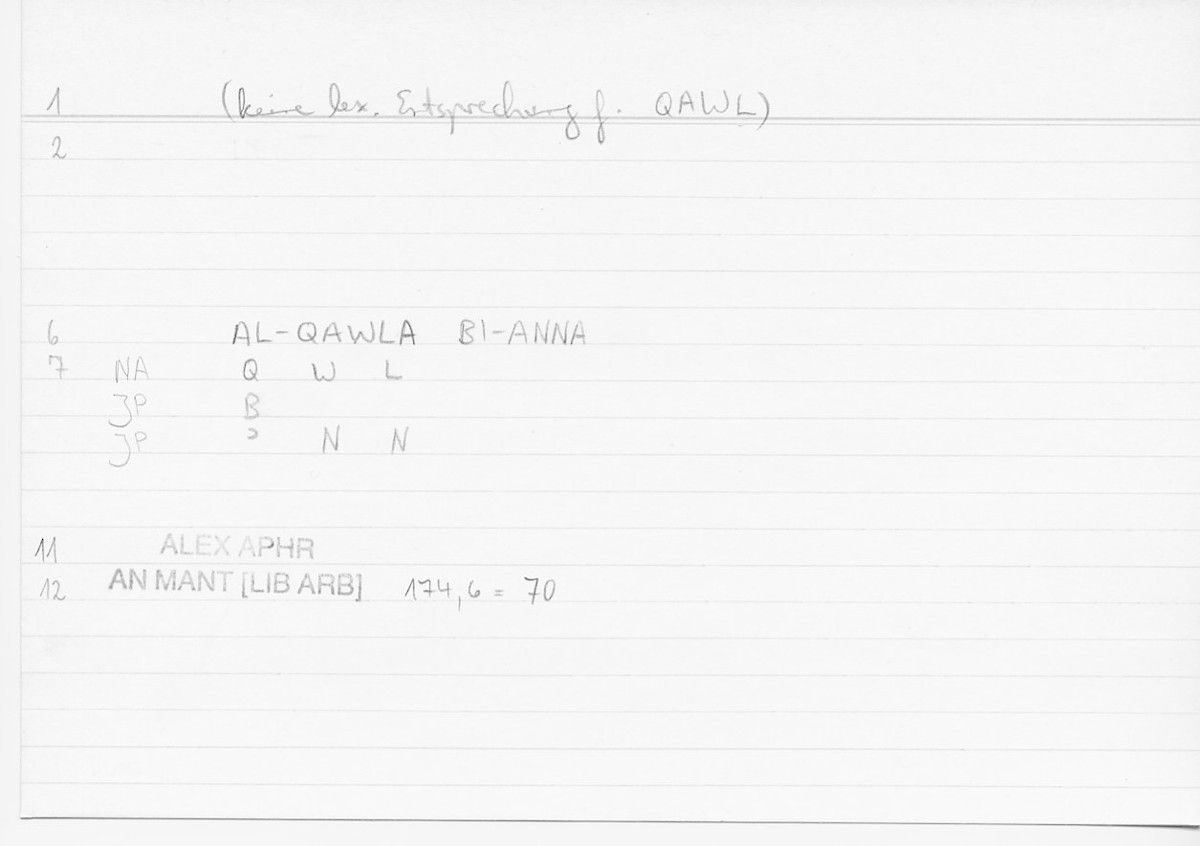 1 (keine lex. Entsprechung f. QAWL)
2
6 AL-QAWLA BI-ANNA
7 NA Q W L
JP B
JP ʾ N N
11 ALEX APHR
12 AN MANT [LIB ARB] 174,6 = 70